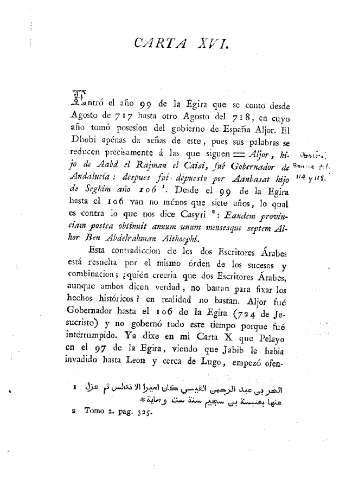 CARTA XVI.
Entró el año 99 de la Egira que se contó desde
Agosto de 717 hasta otro Agosto del 718, en cuyo
año tomó posesion del gobierno de España Aljor. El
Dhobi apénas da señas de este, pues sus palabras se
reducen precisamente á las que siguen = Aljor, hi-
jo de Aabd el Rajman el Caisi, fué Gobernador de
Andalucía: despues fué depuesto por Aanbasat hijo
de Seghim año 106 ¹. Desde el 99 de la Egira
hasta el 106 van no ménos que siete años, lo qual
es contra lo que nos dice Casyri ²: Eandem provin-
ciam postea obtinuit annum unum mensesque septem Al-
hor Ben Abdelrahman Althaephi.
Esta contradiccion de los dos Escritores Árabes
está resuelta por el mismo órden de los sucesos y
combinacion; ¿quién creeria que dos Escritores Árabes,
aunque ambos dicen verdad, no bastan para fixar los
hechos históricos? en realidad no bastan. Aljor fué
Gobernador hasta el 106 de la Egira (724 de Je-
sucristo) y no gobernó todo este tiempo porque fué
interrumpido. Ya dixe en mi Carta X que Pelayo
en el 97 de la Egira, viendo que Jabib le habia
invadido hasta Leon y cerca de Lugo, empezó ofen-
1 الحر بن عبد الرحمن القيسي كان اميرا الاندلس ثم عزل
عنها بعنبسة بن سحيم سنة ست وماية*
2 Tomo 2. pag. 325.